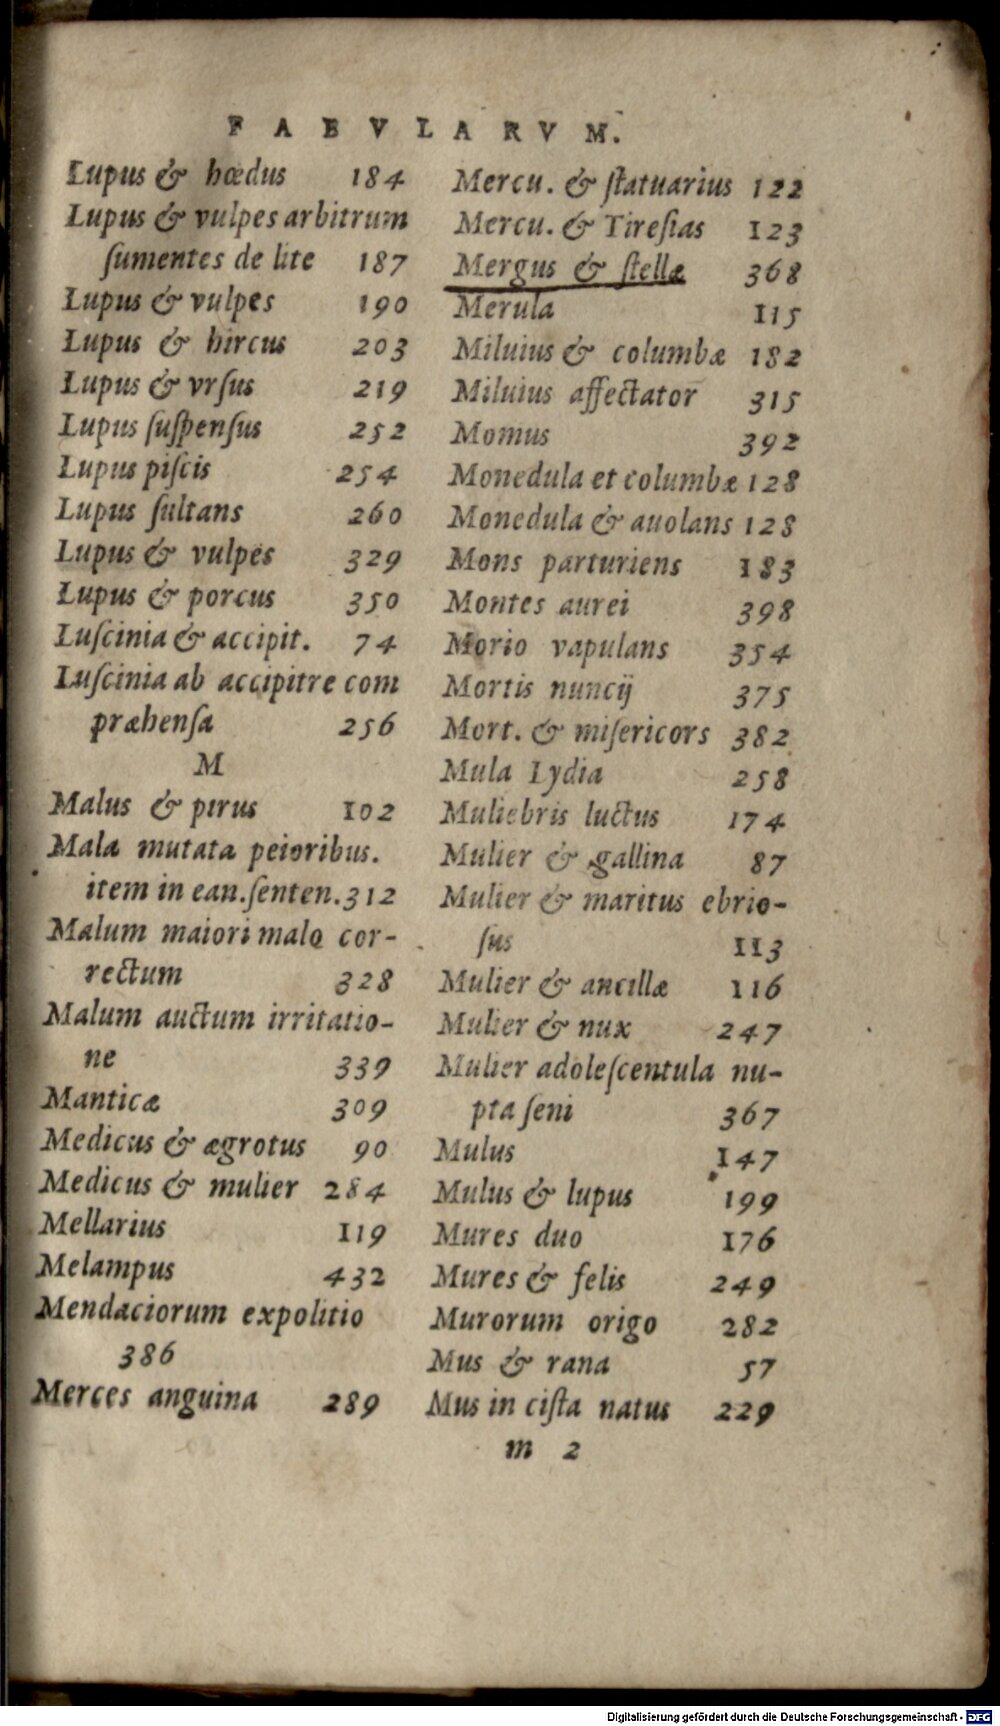 FABVLARVM.
Lupus & hœdus 184
Lupus & vulpes arbitrum
ſumentes de lite 187
Lupus & vulpes 190
Lupus & hircus 203
Lupus & vrſus 219
Lupus ſuſpenſus 252
Lupus piſcis 254
Lupus ſultans 260
Lupus & vulpes 329
Lupus & porcus 350
Luſcinia & accipit. 74
Luſcinia ab accipitre com
præhenſa 256
M
Malus & pirus 102
Mala mutata peioribus.
item in ean.ſenten. 312
Malum maiori malo cor-
rectum 328
Malum auctum irritatio-
ne 339
Manticæ 309
Medicus & ægrotus 90
Medicus & mulier 284
Mellarius 119
Melampus 432
Mendaciorum expolitio
386
Merces anguina 289
Mercu. & ſtatuarius 122
Mercu. & Tireſias 123
Mergus & ſtellæ 368
Merula 115
Miluius & columbæ 182
Miluius affectator 315
Momus 392
Monedula et columbæ 128
Monedula & auolans 128
Mons parturiens 183
Montes aurei 398
Morio vapulans 354
Mortis nuncij 375
Mort. & miſericors 382
Mula Lydia 258
Muliebris luctus 174
Mulier & gallina 87
Mulier & maritus ebrio-
ſus 113
Mulier & ancillæ 116
Mulier & nux 247
Mulier adoleſcentula nu-
pta ſeni 367
Mulus 147
Mulus & lupus 199
Mures duo 176
Mures & felis 249
Murorum origo 282
Mus & rana 57
Mus in ciſta natus 229
m 2
Digitalisierung gefördert durch die Deutsche Forschungsgemeinschaft - DFG